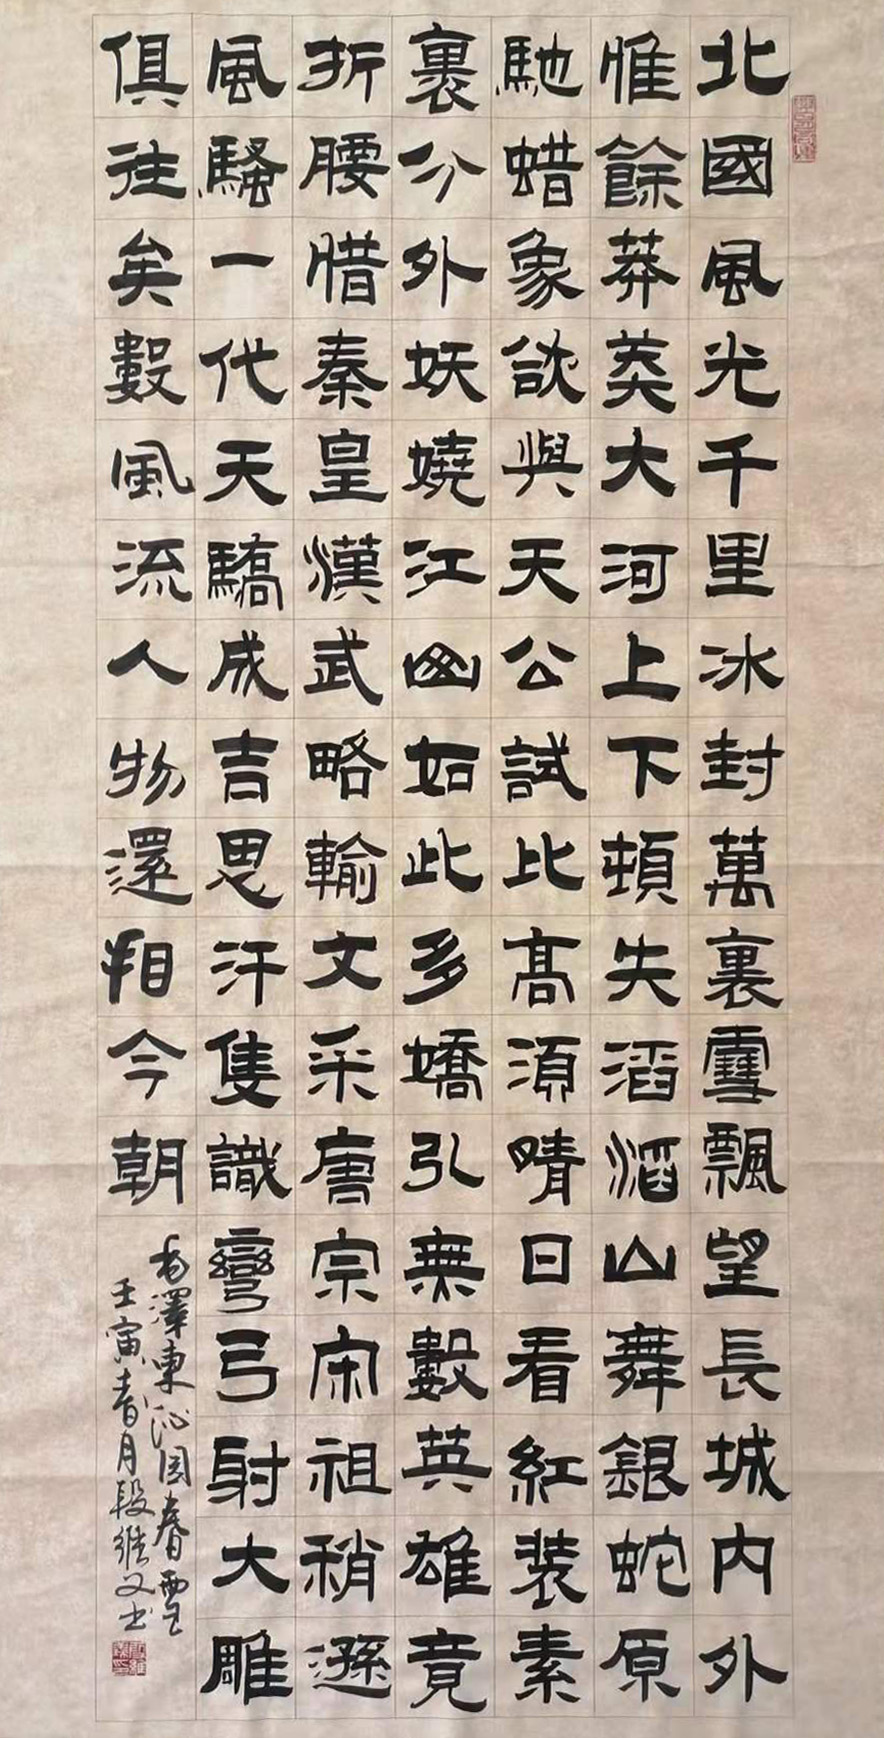 北國風光千里冰封萬裏雪飄望長城内外
惟餘莽莽大河上下頓失滔滔山舞銀蛇原
馳蜡象欲與天公試比高須晴日看紅裝素
裹分外妖嬈江山如此多嬌引無數英雄竟
折腰惜秦皇漢武略輸文采唐宗宋祖稍遜
風騷一代天驕成吉思汗隻識彎弓射大雕
俱往矣數風流人物還看今朝
毛澤東沁園春雪
壬寅春月段維文書